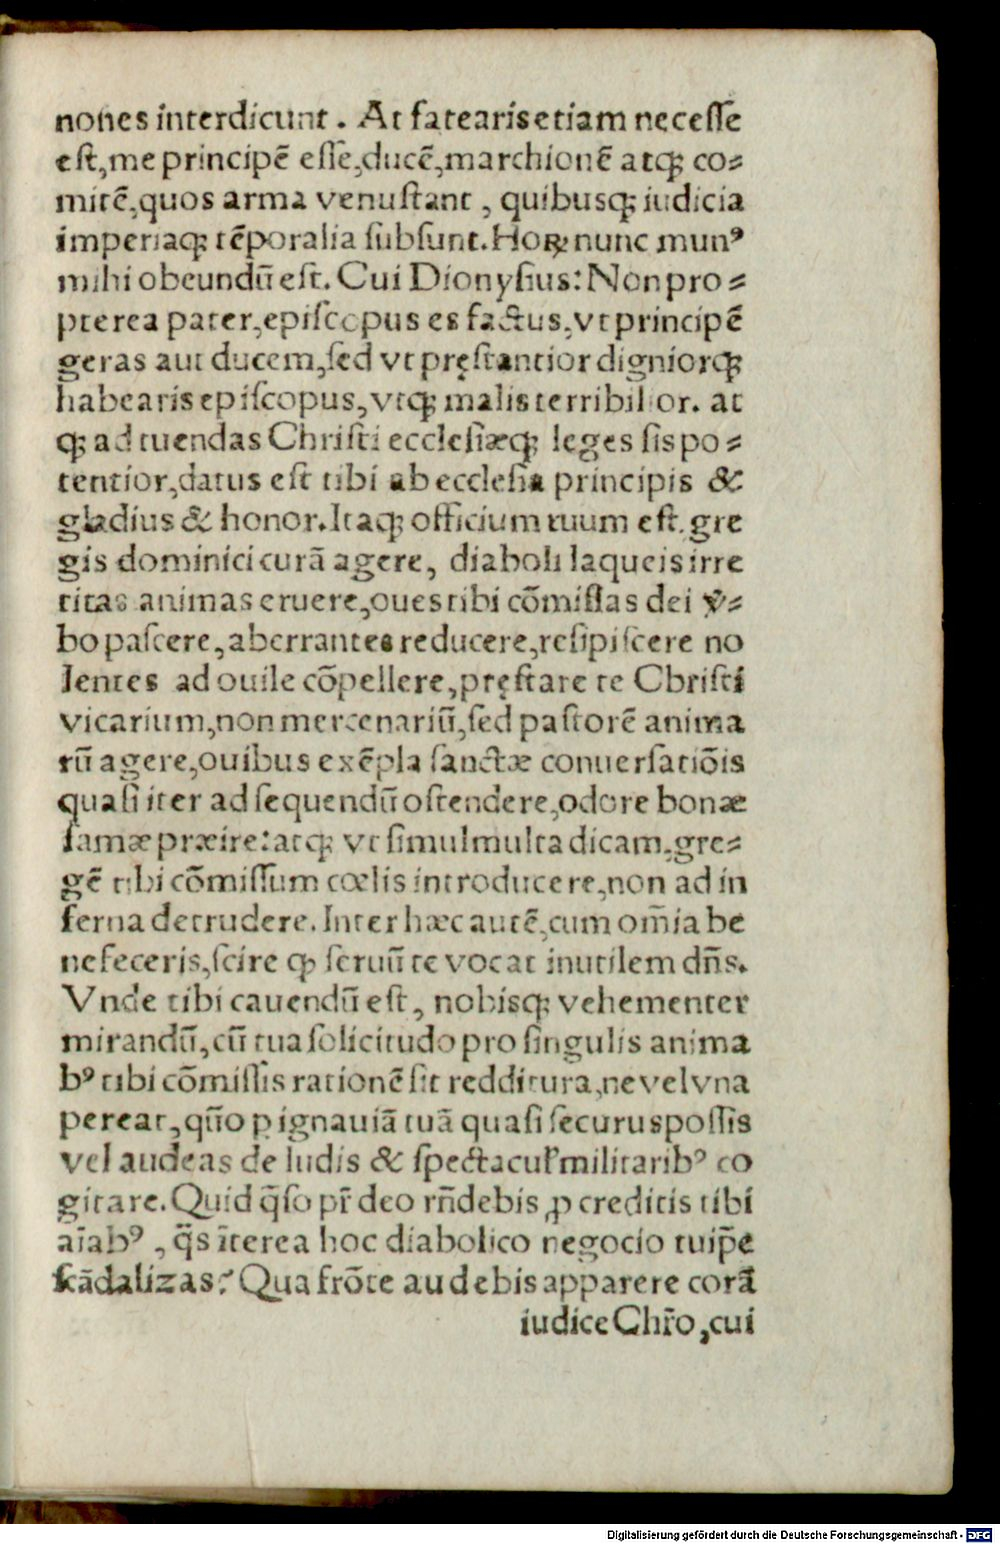 nones interdicunt. At fatearis etiam necesse
est, me principē esse, ducē, marchionē atq; co⸗
mitē, quos arma venustant, quibusq; iudicia
imperiaq; tēporalia subsunt. Hoꝝ nunc munꝰ
mihi obeundū est. Cui Dionysius: Non pro⸗
pterea pater, episcopus es factus, vt principē
geras aut ducem, sed vt pręstantior digniorq;
habearis episcopus, vtq; malis terribilior. at
q; ad tuendas Christi ecclesiæq; leges sis po⸗
tentior, datus est tibi ab ecclesia principis &
gladius & honor. Itaq; officium tuum est, gre
gis dominici curā agere, diaboli laqueis irre
titas animas eruere, oues tibi cōmissas dei v̄⸗
bo pascere, aberrantes reducere, resipiscere no
lentes ad ouile cōpellere, pręstare te Christi
vicarium, non mercenariū, sed pastorē anima
rū agere, ouibus exēpla sanctæ conuersatiōis
quasi iter ad sequendū ostendere, odore bonæ
famæ præire: atq; vt simul multa dicam, gre⸗
gē tibi cōmissum cœlis introducere, non ad in
ferna detrudere. Inter hæc autē, cum om̄ia be
ne feceris, scire ꝙ seruū te vocat inutilem dn̄s.
Vnde tibi cauendū est, nobisq; vehementer
mirandū, cū tua solicitudo pro singulis anima
bꝰ tibi cōmissis rationē sit redditura, ne vel vna
pereat, quō ꝑ ignauiā tuā quasi securus possis
vel audeas de ludis & spectacul' militaribꝰ co
gitare. Quid q̄so pr̄ deo rn̄debis ꝓ creditis tibi
aīabꝰ, q̄s īterea hoc diabolico negocio turp̄e
scādalizas? Qua frōte audebis apparere corā
iudice Chr̄o, cui
Digitalisierung gefördert durch die Deutsche Forschungsgemeinschaft - DFG